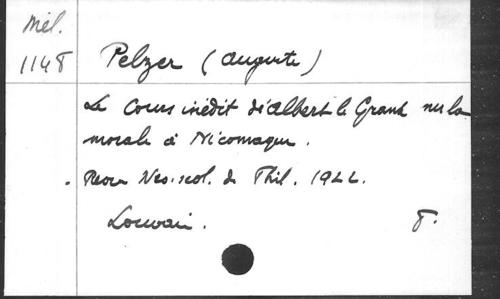 Mél.
1148
Pelzer (Auguste)
Le Cours inédit d'Albert le Grand sur la
morale à Nicomaque.
Revue Néo-scol. de Phil. 1922.
Louvain. 8.